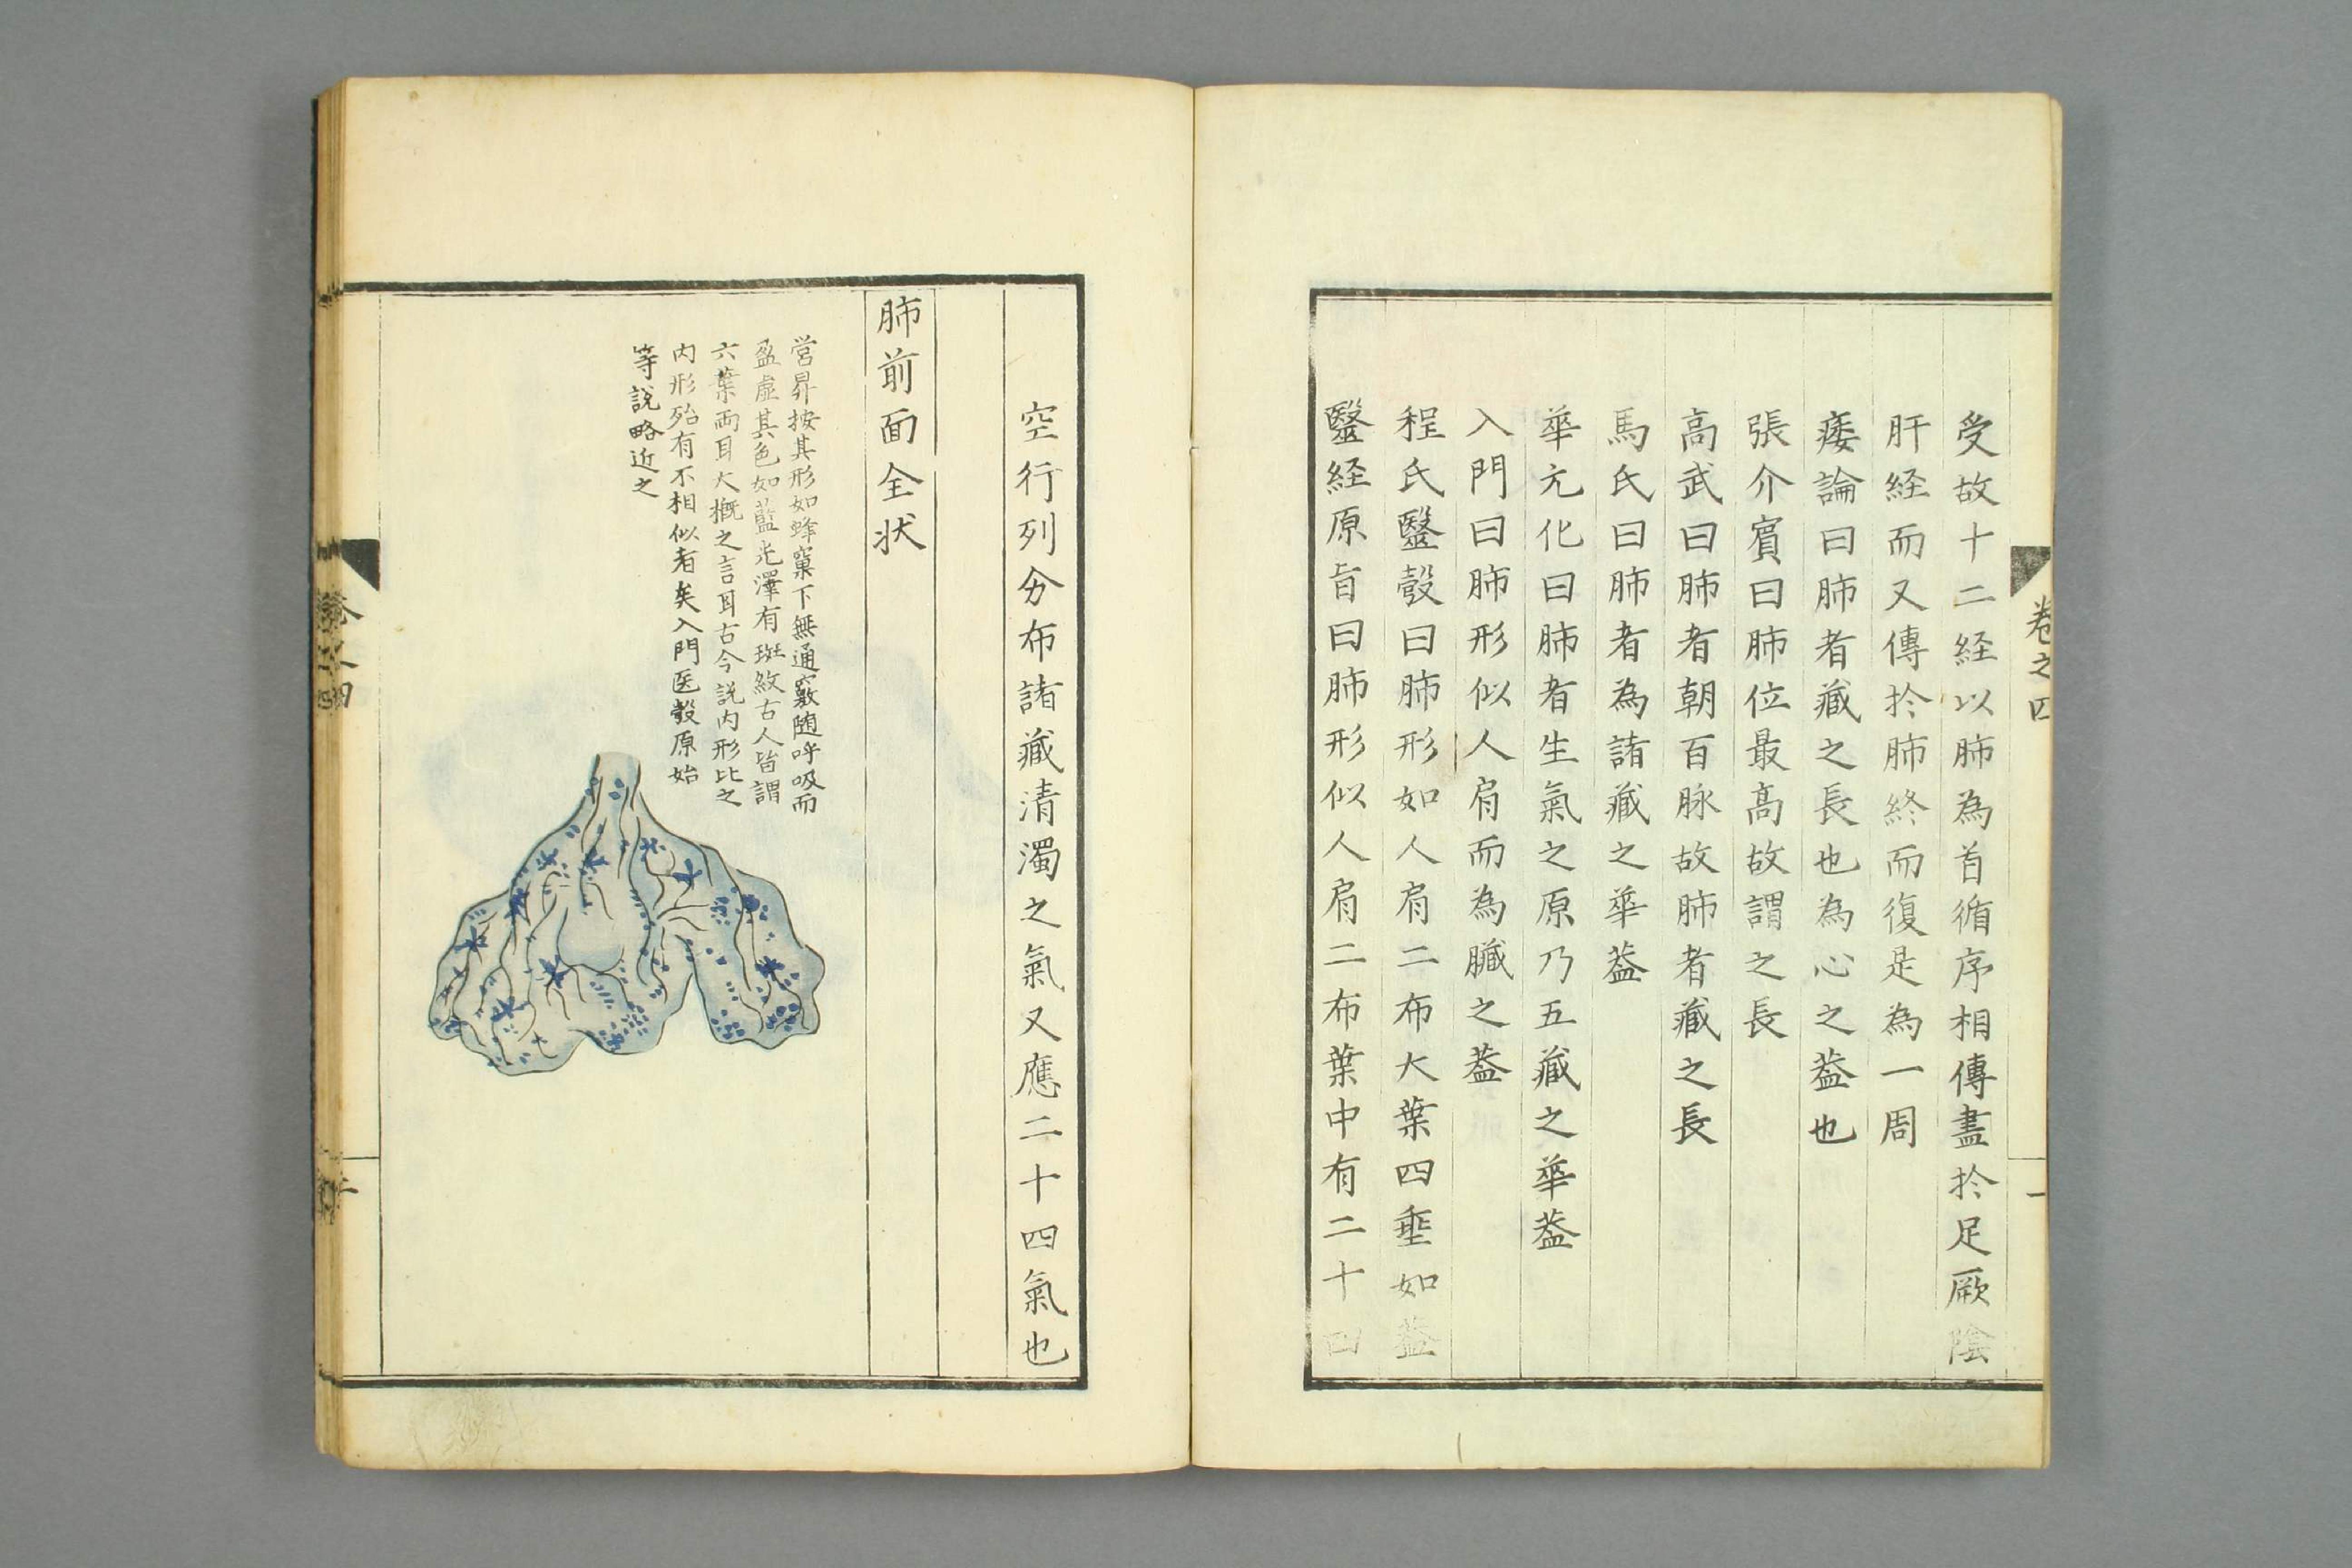 卷之四
一
受故十二経以肺為首循序相傳盡於足厥陰
肝経而又傳於肺終而復是為一周
痿論曰肺者藏之長也為心之葢也
張介賔曰肺位最高故謂之長
高武曰肺者朝百脉故肺者藏之長
馬氏曰肺者為諸藏之華葢
華元化曰肺者生氣之原乃五藏之華葢
入門曰肺形似人肩而為臓之葢
程氏醫彀曰肺形如人肩二布大葉四垂如葢
醫経原旨曰肺形似人肩二布葉中有二十四
空行列分布諸藏清濁之氣又應二十四氣也
肺前面全状
営昇按其形如蜂窠下無通竅随呼吸而
盈虚其色如藍光澤有斑紋古人皆謂
六葉両耳大概之言耳古今説内形比之
内形殆有不相似者矣入門医彀原始
等説略近之